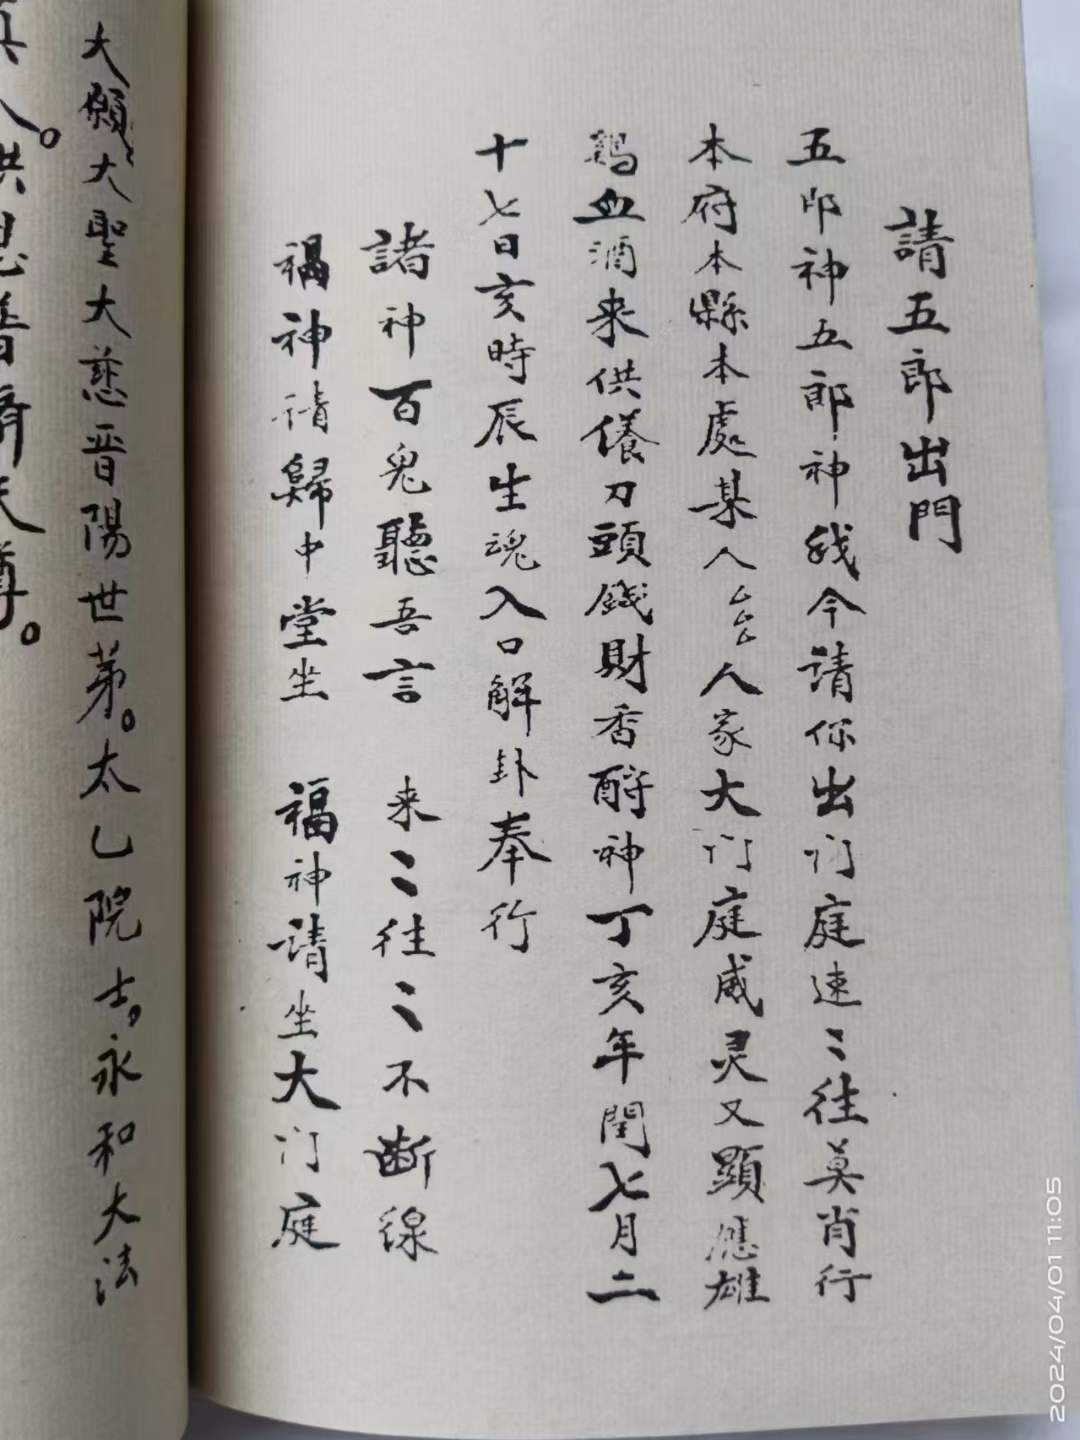 請五郎出門
五郎神五郎神我今請你出门庭速〻往莫肖行
本府本縣本處某人人家大门庭威灵又顯應雄
鷄血酒来供儀刀頭錢財香酧神丁亥年閏七月二
十七日亥時辰生魂入口解卦奉行
諸神百鬼聽吾言 来〻往〻不断線
福神請歸中堂坐 福神請坐大门庭
大願大聖大慈晋陽世苐。太乙院士,永和大法
真人。洪恩普濟天尊。
2024/04/01 11:05